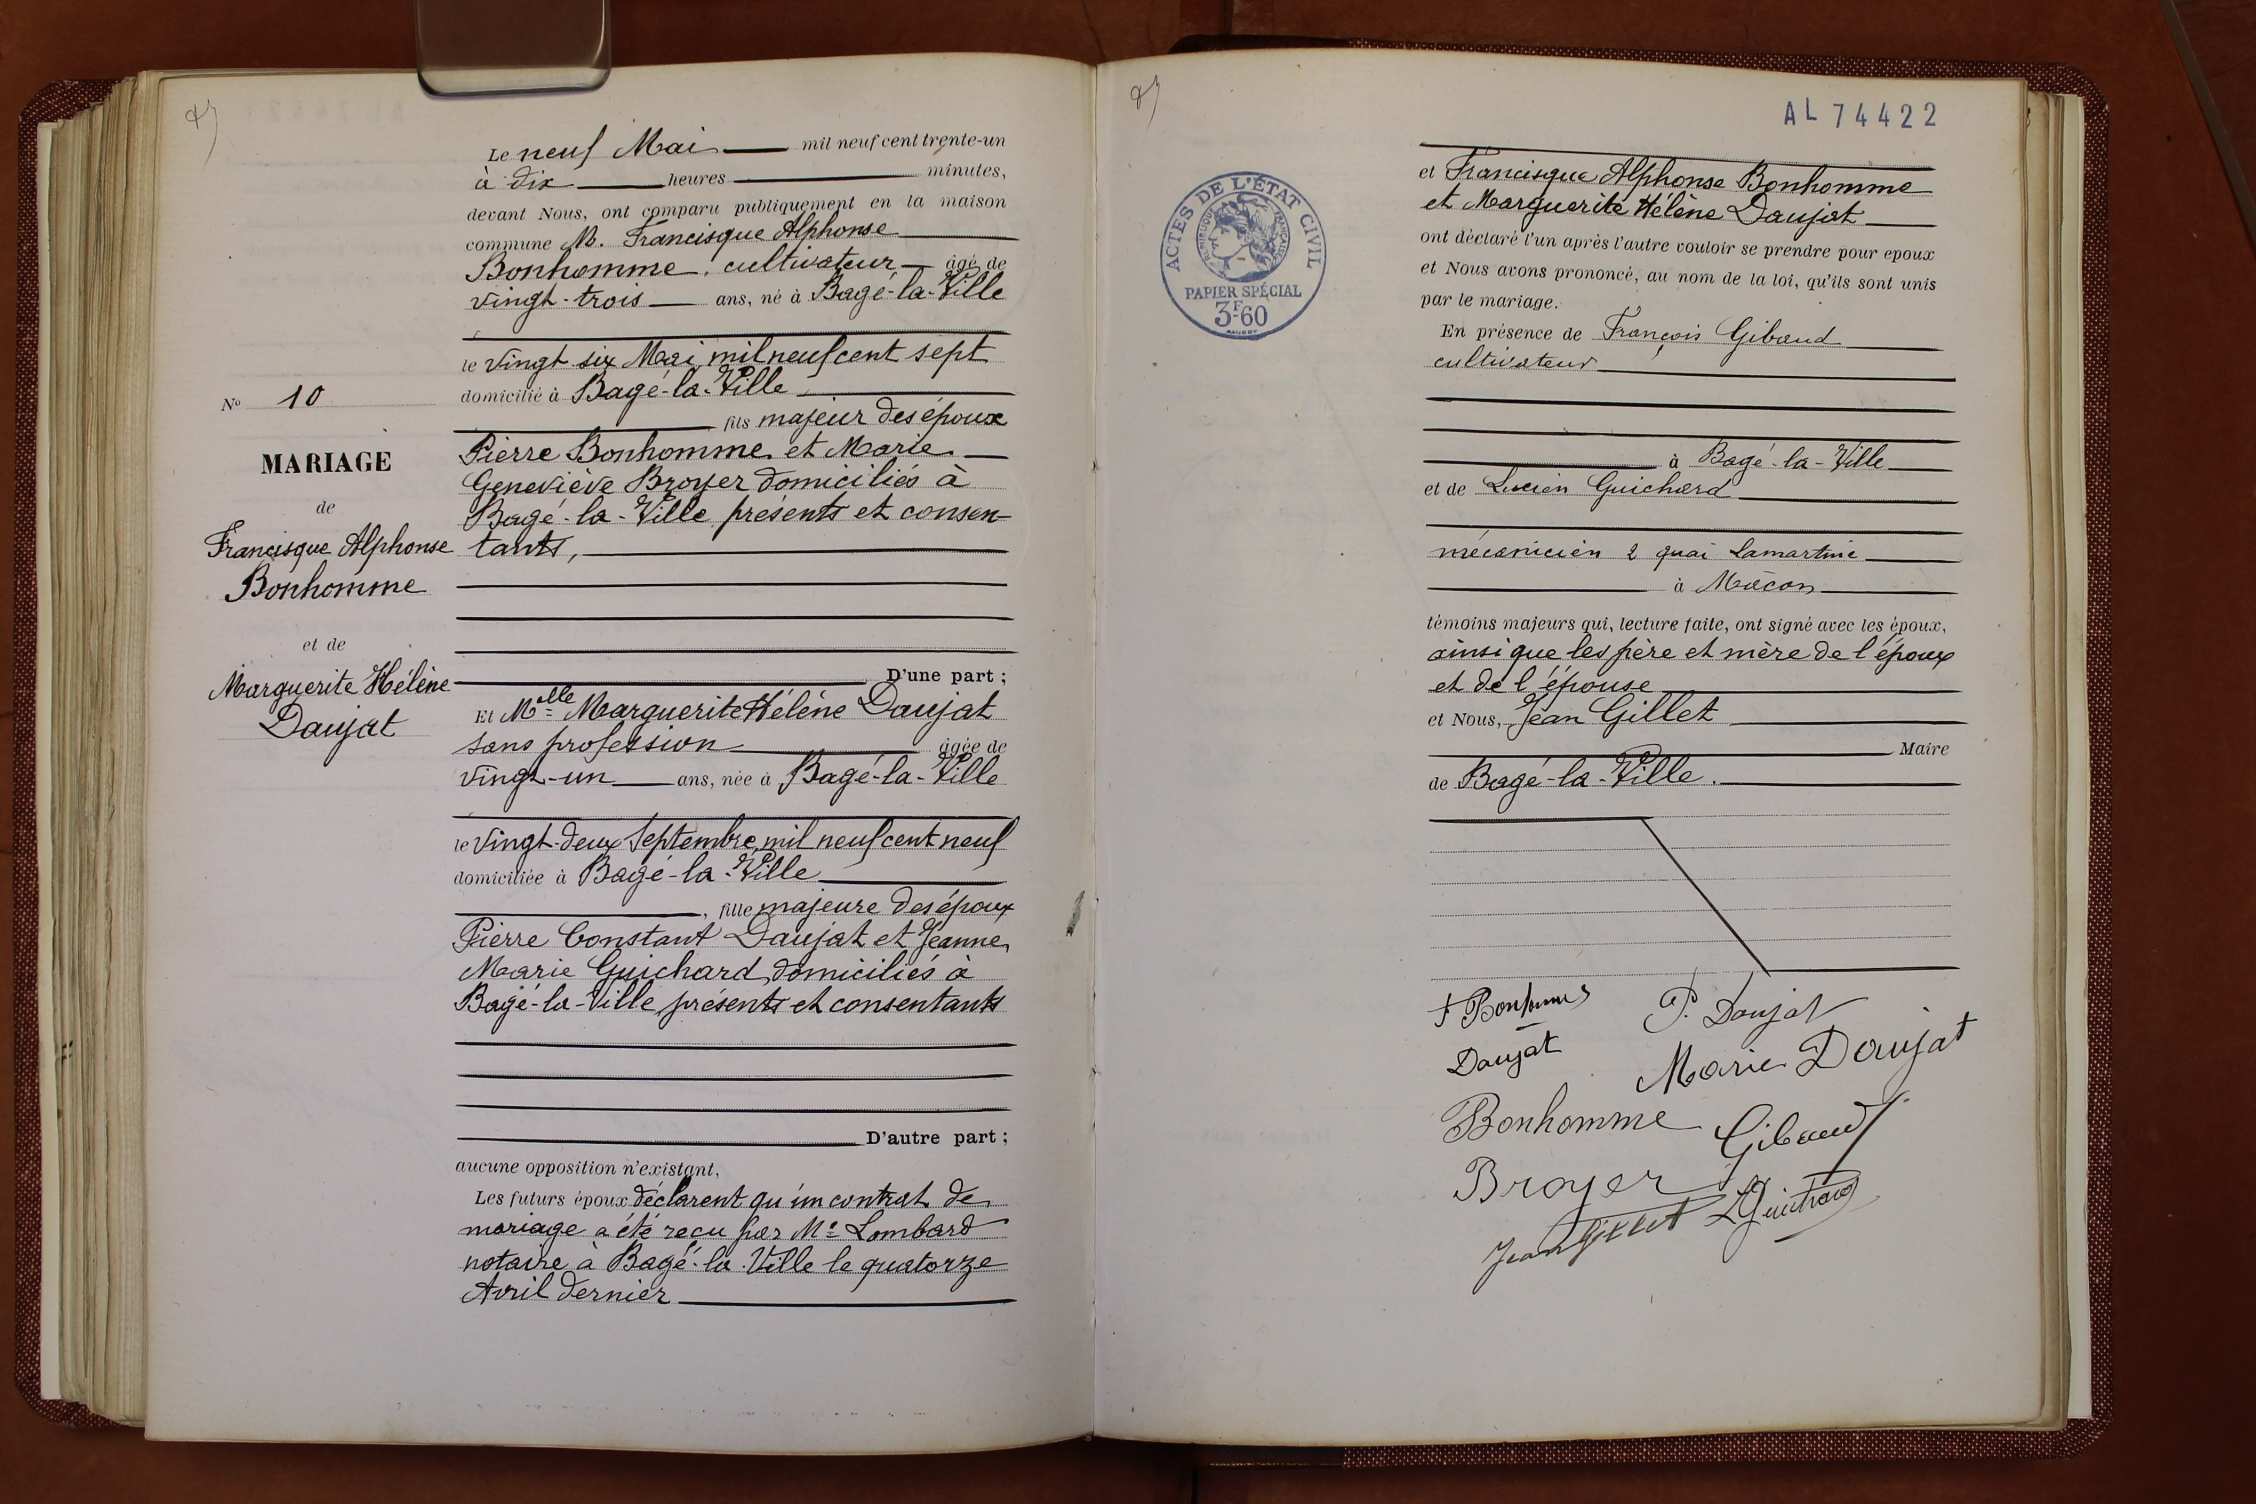 Le neuf Mai mil neuf cent trente-un
à dix heures minutes,
devant Nous, ont comparu publiquement en la maison
commune M. Francisque Alphonse
Bonhomme, cultivateur âgé de
vingt-trois ans, né à Bagé-la-Ville
le vingt-six Mai mil neuf cent sept
domicilié à Bagé-la-Ville
fils majeur des époux
Pierre Bonhomme et Marie
Geneviève Broyer domiciliés à
Bagé-la-Ville présents et consen-
tants,
D'une part ;
Et Melle Marguerite Hélène Daujat
sans profession âgée de
vingt-un ans, née à Bagé-la-Ville
le vingt-deux Septembre mil neuf cent neuf
domiciliée à Bagé-la-Ville
, fille majeure des époux
Pierre Constant Daujat et Jeanne
Marie Guichard domiciliés à
Bagé-la-Ville présents et consentants
D'autre part ;
aucune opposition n'existant,
Les futurs époux déclarent qu'un contrat de
mariage a été reçu par Me Lombard
notaire à Bagé-la-Ville le quatorze
Avril dernier
No 10
MARIAGE
de
Francisque Alphonse
Bonhomme
et de
Marguerite Hélène
Daujat
AL 74422
ACTES DE L'ÉTAT CIVIL
RÉPUBLIQUE FRANÇAISE
PAPIER SPÉCIAL
3F60
et Francisque Alphonse Bonhomme
et Marguerite Hélène Daujat
ont déclaré l'un après l'autre vouloir se prendre pour epoux
et Nous avons prononcé, au nom de la loi, qu'ils sont unis
par le mariage.
En présence de François Giboud
cultivateur
à Bagé-la-Ville
et de Lucien Guichard
mécanicien 2 quai Lamartine
à Mâcon
témoins majeurs qui, lecture faite, ont signé avec les époux,
ainsi que les père et mère de l'époux
et de l'épouse
et Nous, Jean Gillet
Maire
de Bagé-la-Ville.
F Bonhomme P. Daujat
Daujat Marie Daujat
Bonhomme Giboud
Broyer LGuichard
Jean Gillet